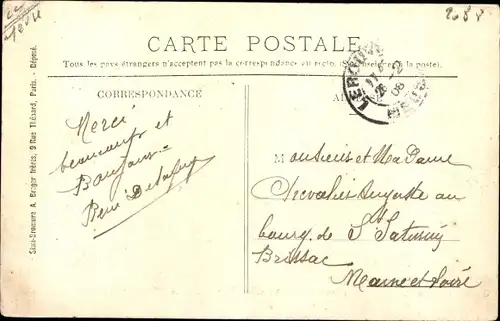 2088
CARTE POSTALE
Tous les pays étrangers n'acceptent pas la correspondance au recto. (Se renseigner à la poste).
CORRESPONDANCE
Merci
beaucoup et
Bonjour
René
Monsieur et Madame
Chevalier Auguste au
bourg de St Saturnin
Brissac
Maine et Loire
Semi-Bromure A. Breger frères, 9 Rue Thénard, Paris. - Déposé.